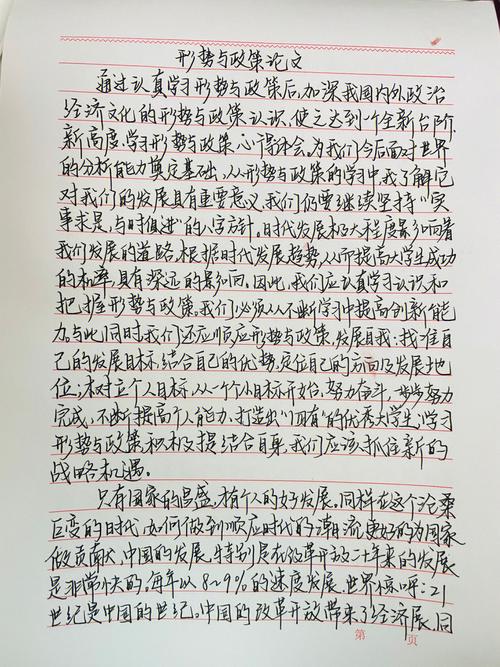 形势与政策论文
通过认真学习形势与政策后,加深我国内外政治
经济文化的形势与政策认识,使之达到一个全新台阶,
新高度.学习形势与政策心得体会,为我们今后面对世界
的分析能力奠定基础,从形势与政策的学习中,我了解它
对我们的发展具有重要意义,我们仍要继续坚持"实
事求是,与时俱进"的八字方针。时代发展极大程度影响着
我们发展的道路,根据时代发展趋势,从而提高大学生成功
的机率,具有深远的影响。因此,我们应认真学习认识和
把握形势与政策。我们必须从不断学习中提高创新能
力。与此同时我们还应顺应形势与政策,发展自我:找准自
己的发展目标,结合自己的优势,定位自己的方向及发展地
位;树立个人目标,从一个个小目标开始,努力奋斗,步步努力
完成,不断提高个人能力,打造出"四有"的优秀大学生;学习
形势与政策积极提结合自身,我们应该抓住新的
战略机遇。
只有国家的昌盛,才有个人的好发展。同样在这个沧桑
巨变的时代,如何做到顺应时代的潮流,更好的为国家
做贡献,中国的发展,特别是在改革开放二十年来的发展
是非常快的。每年以8~9%的速度发展.世界惊呼:21
世纪是中国的世纪。中国的改革开放带来了经济展,同
第 页